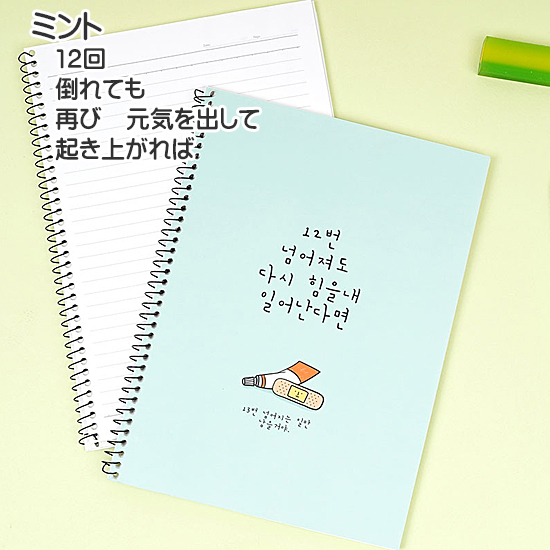 ミント
12回
倒れても
再び 元気を出して
起き上がれば
12번
넘어져도
다시 힘을내
일어난다면
13번 넘어지는 일만
남을거야.